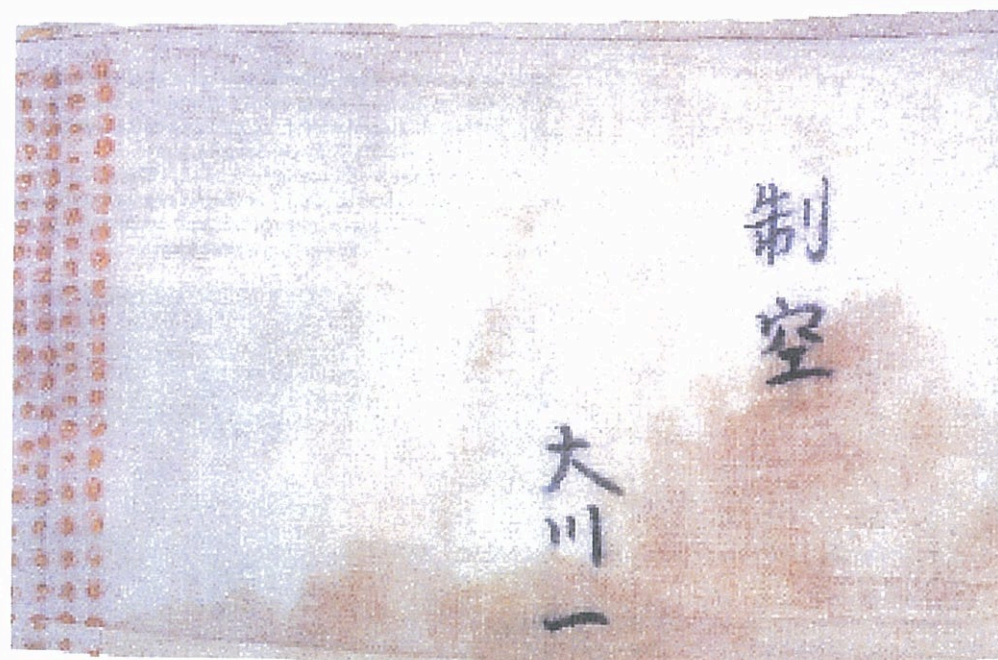 制空
大川一